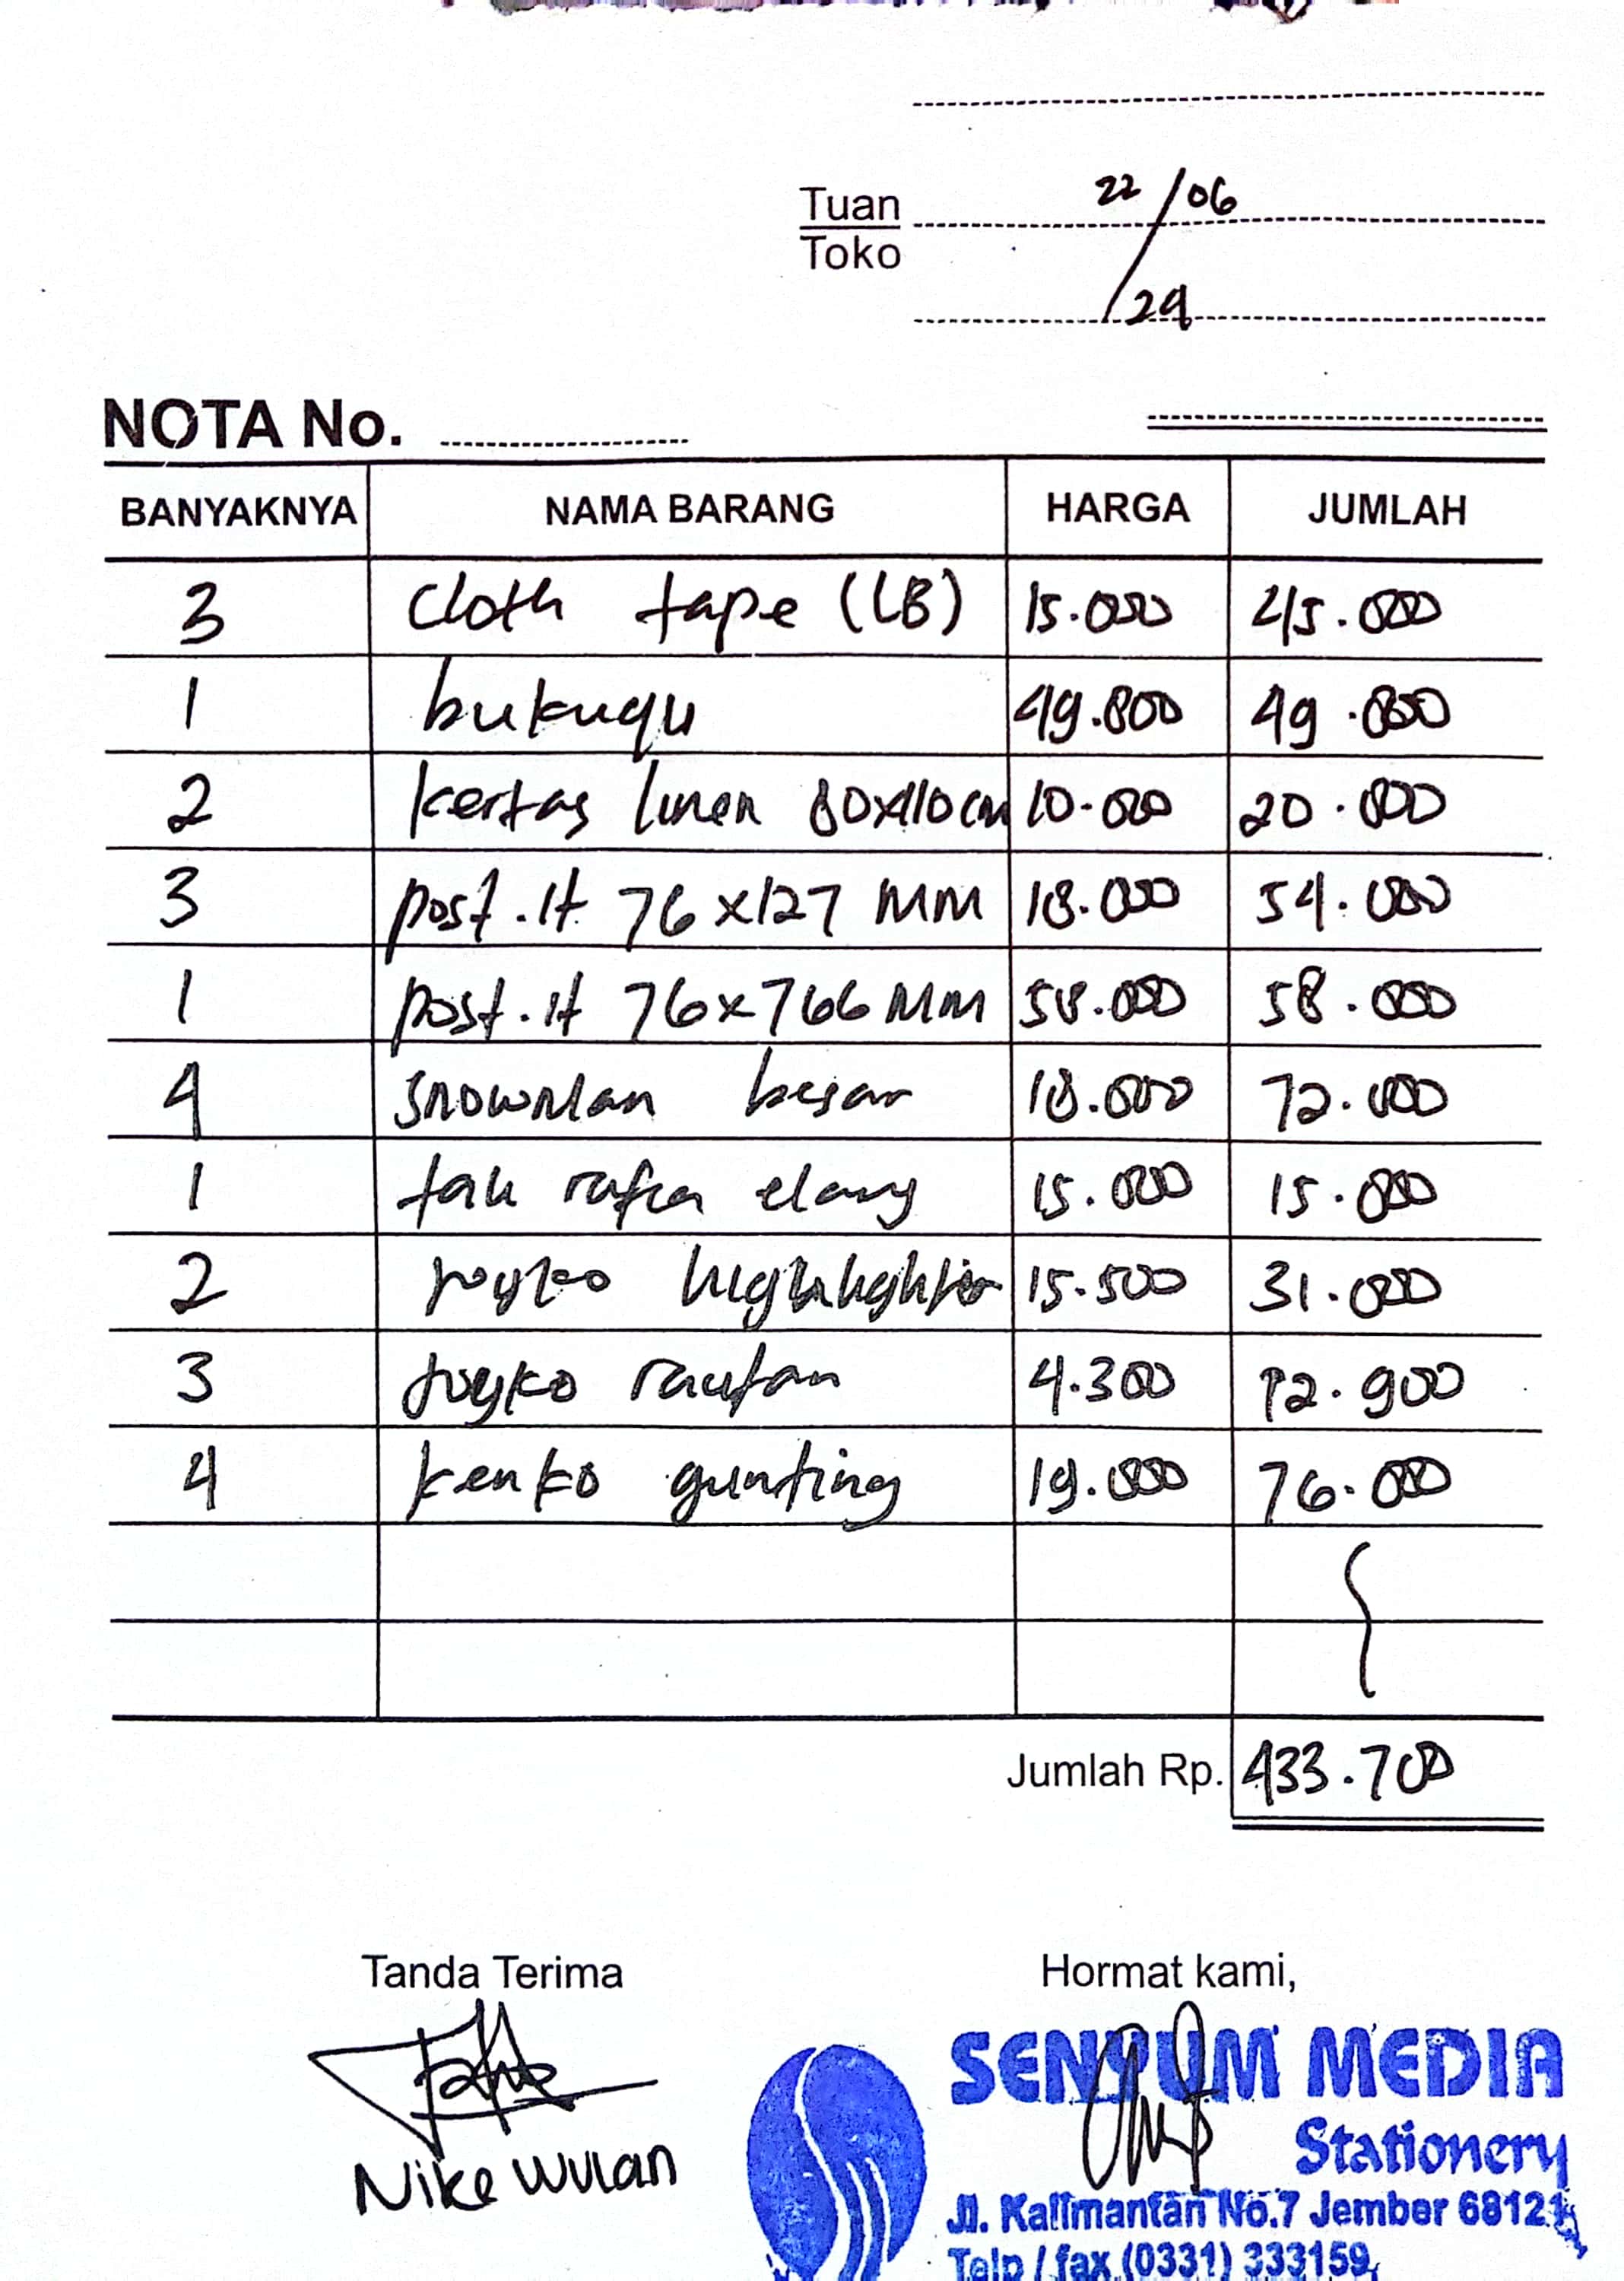 22/06/24
Tuan
Toko
NOTA No.
BANYAKNYA NAMA BARANG HARGA JUMLAH
3 cloth tape (LB) 15.000 45.000
1 bukuqu 49.800 49.800
2 kertas linen 80x110cm 10.000 20.000
3 post.it 76x127 MM 18.000 54.000
1 post.it 76x766 MM 58.000 58.000
4 snowman besar 18.000 72.000
1 tali rafia elang 15.000 15.000
2 joyko highlighter 15.500 31.000
3 joyko rautan 4.300 12.900
4 kenko gunting 19.000 76.000
Jumlah Rp. 433.700
Tanda Terima Hormat kami,
Nike Wulan
SENYUM MEDIA
Stationery
Jl. Kalimantan No.7 Jember 68121
Telp / fax (0331) 333159